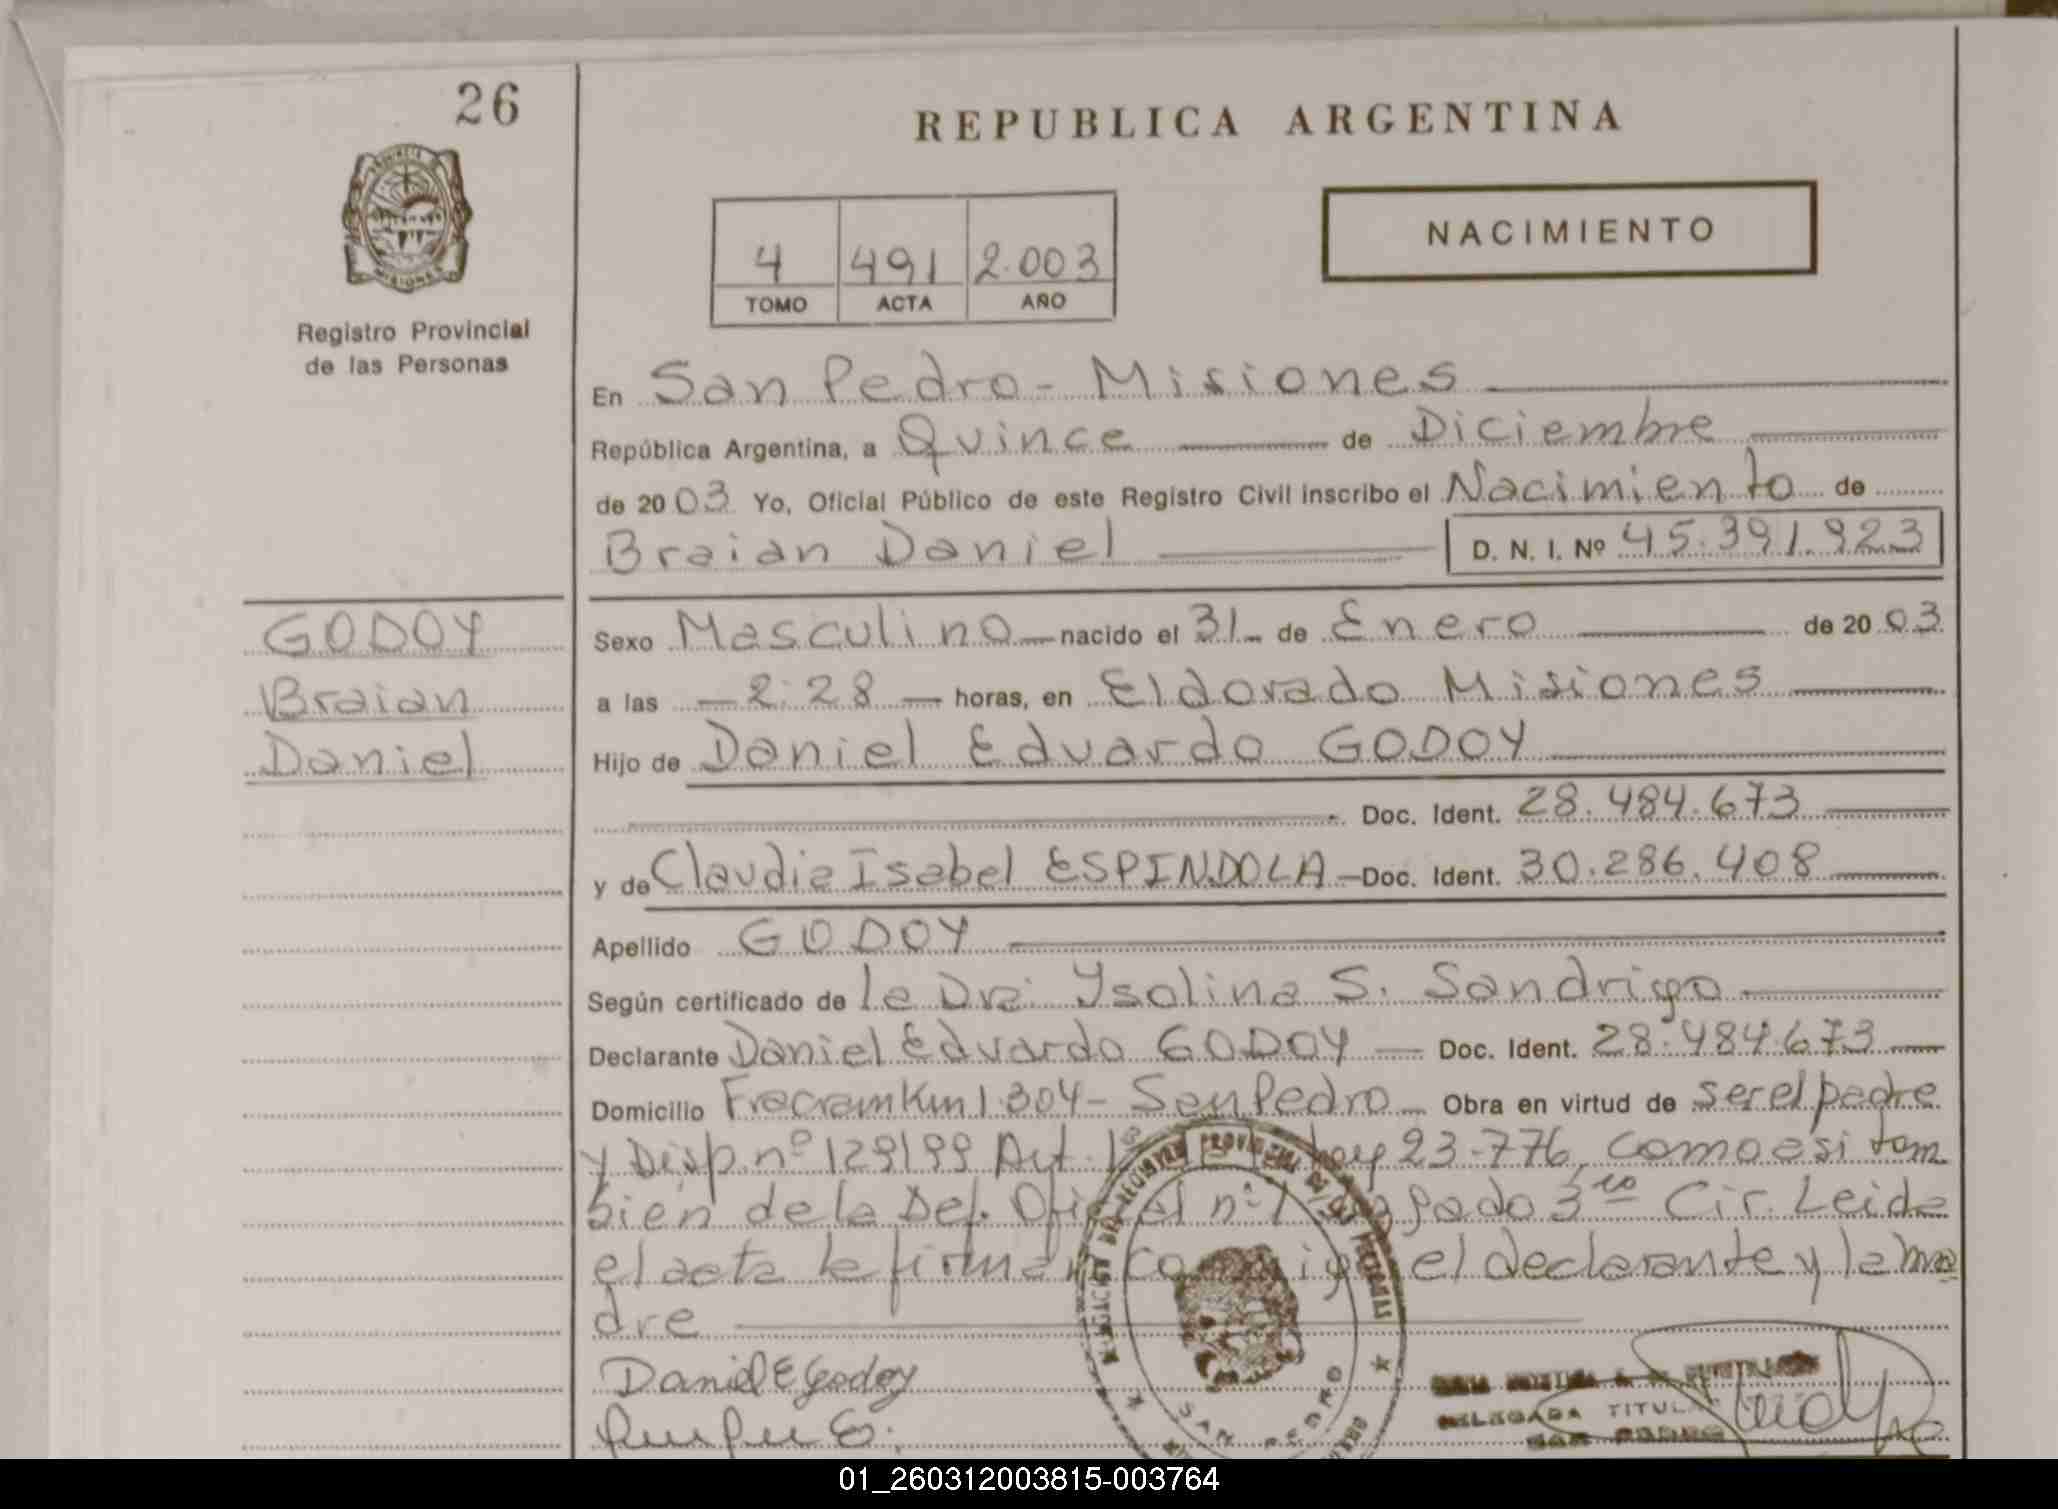 26
REPUBLICA ARGENTINA
NACIMIENTO
4 491 2.003
TOMO ACTA AÑO
Registro Provincial
de las Personas
En San Pedro - Misiones
República Argentina, a Quince de Diciembre
de 2003 Yo, Oficial Público de este Registro Civil inscribo el Nacimiento de
Braian Daniel D. N. I. Nº 45.391.923
GODOY
Braian
Daniel
Sexo Masculino nacido el 31 de Enero de 2003
a las 2:28 horas, en Eldorado Misiones
Hijo de Daniel Eduardo GODOY
Doc. Ident. 28.484.673
y de Claudia Isabel ESPINDOLA Doc. Ident. 30.286.408
Apellido GODOY
Según certificado de la Dra. Ysolina S. Sandrigo
Declarante Daniel Eduardo GODOY Doc. Ident. 28.484.673
Domicilio Fracram Km 1.304 - San Pedro Obra en virtud de ser el padre
y Disp. nº 129/99 Art. 1 Ley 23.776, como asi tam
bien de la Def. Oficial nº 1 3ra Cir. Leida
el acta la firman conmigo el declarante y la ma
dre
Daniel E Godoy
DELEGADA TITULAR
SAN PEDRO
SAN PEDRO
01_260312003815-003764